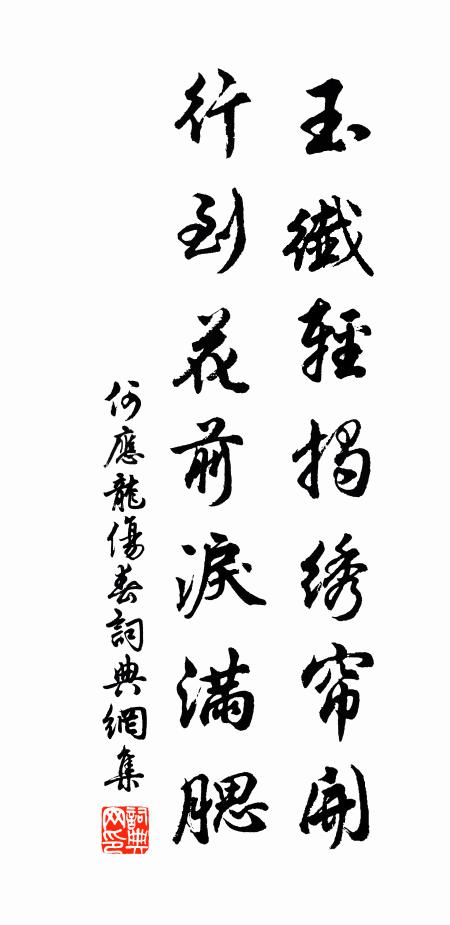 玉纖輕揭绣帘開
行到花前淚满腮
何應龍傷春詞典網集
詞典网印